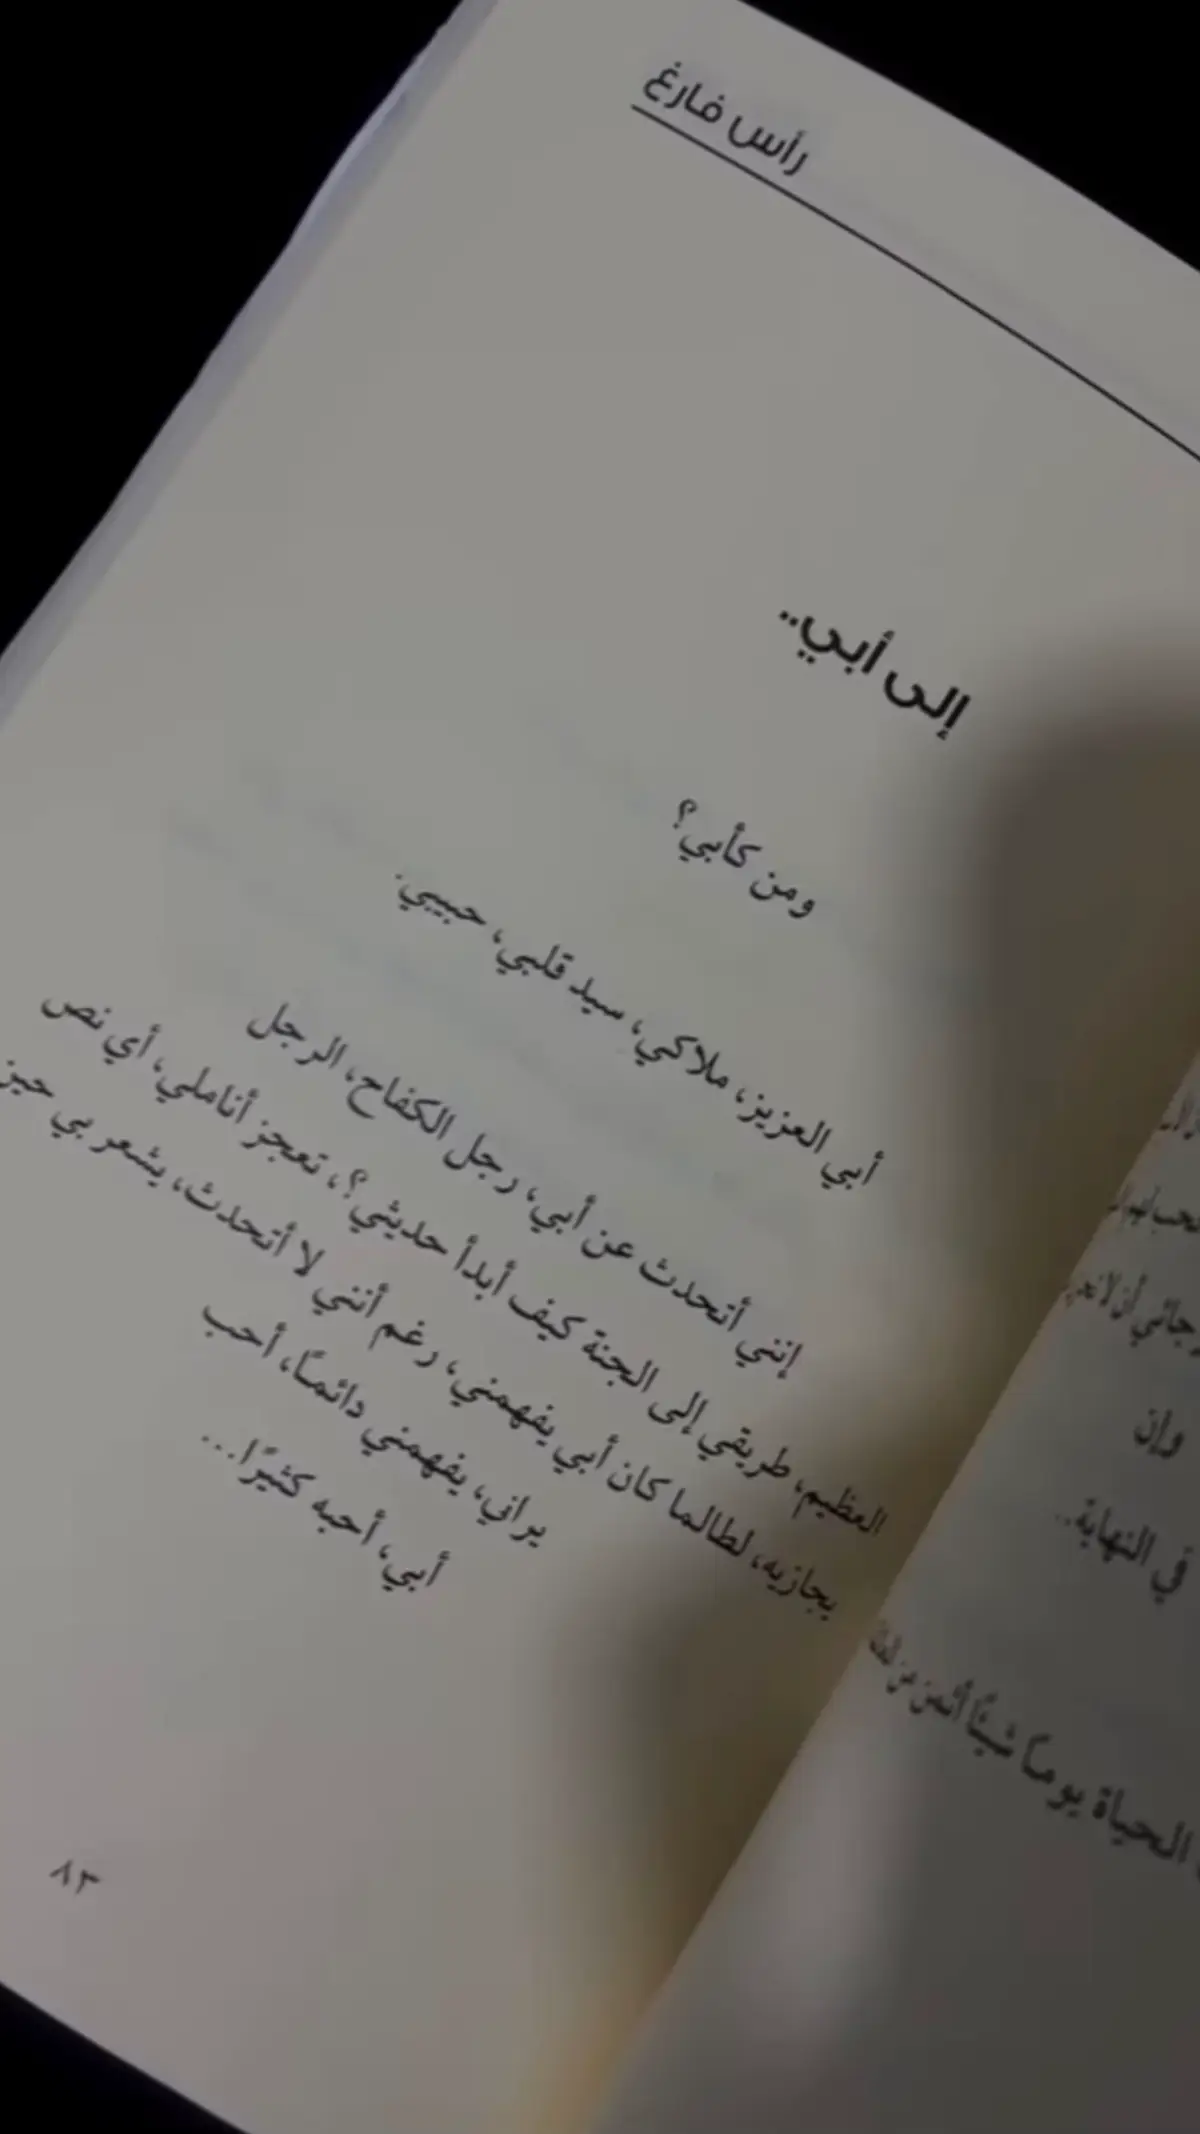 رأس فارغ
إلى أبي..
ومن كأبي؟
أبي العزيز، ملاكي، سيد قلبي، حبيبي.
إنني أتحدث عن أبي، رجل الكفاح، الرجل
العظيم، طريقي إلى الجنة كيف أبدأ حديثي؟، تعجز أناملي، أي نص
يجازيه، لطالما كان أبي يفهمني، رغم أنني لا أتحدث، يشعر بي حين
يراني، يفهمني دائمًا، أحب
أبي، أحبه كثيرًا...
٨٣
أن لا
وإن
في النهاية..
الحياة يومًا شيئًا أثمن من